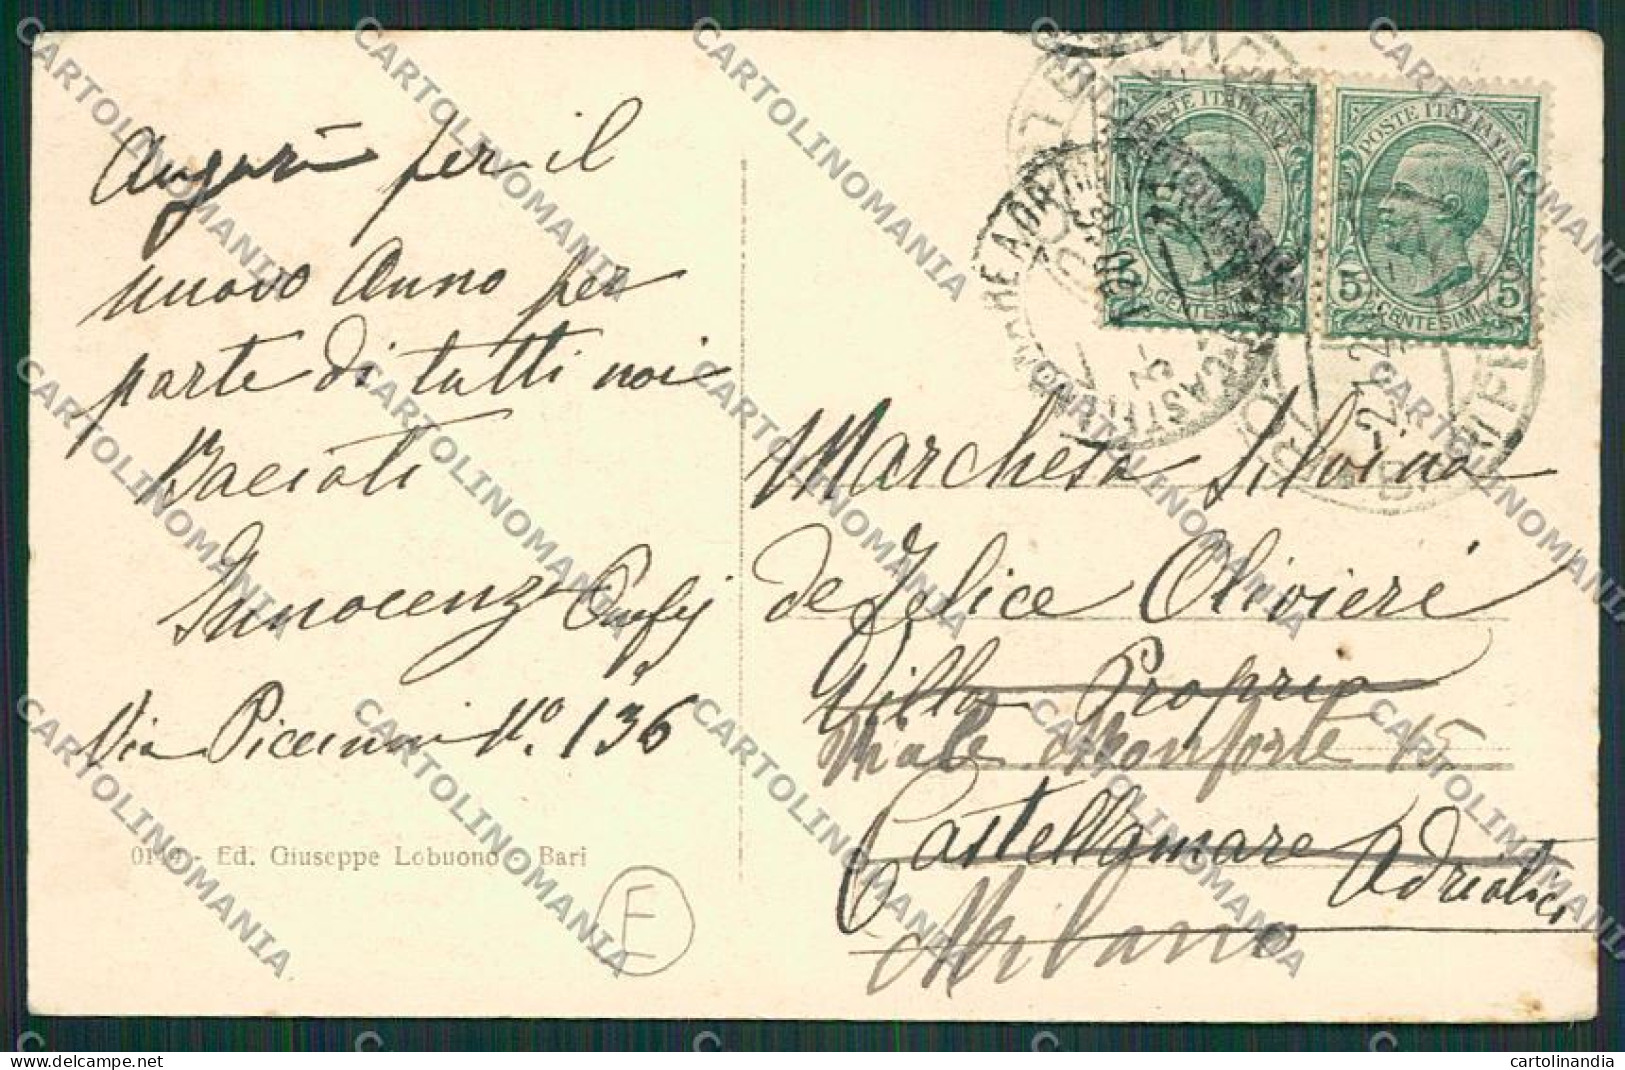 Auguri per il
nuovo Anno per
parte di tutti noi
Baciati
Innocenzo
Via Piccinni N.° 136
Ed. Giuseppe Lobuono - Bari
E
POSTE ITALIANE
5 CENTESIMI
POSTE ITALIANE
5 CENTESIMI 5
Marchesa Silvina
de Felice Olivieri
Villa Propria
Viale Monforte 15
Castellamare Adriatico
Milano
CARTOLINOMANIA
cartolinandia